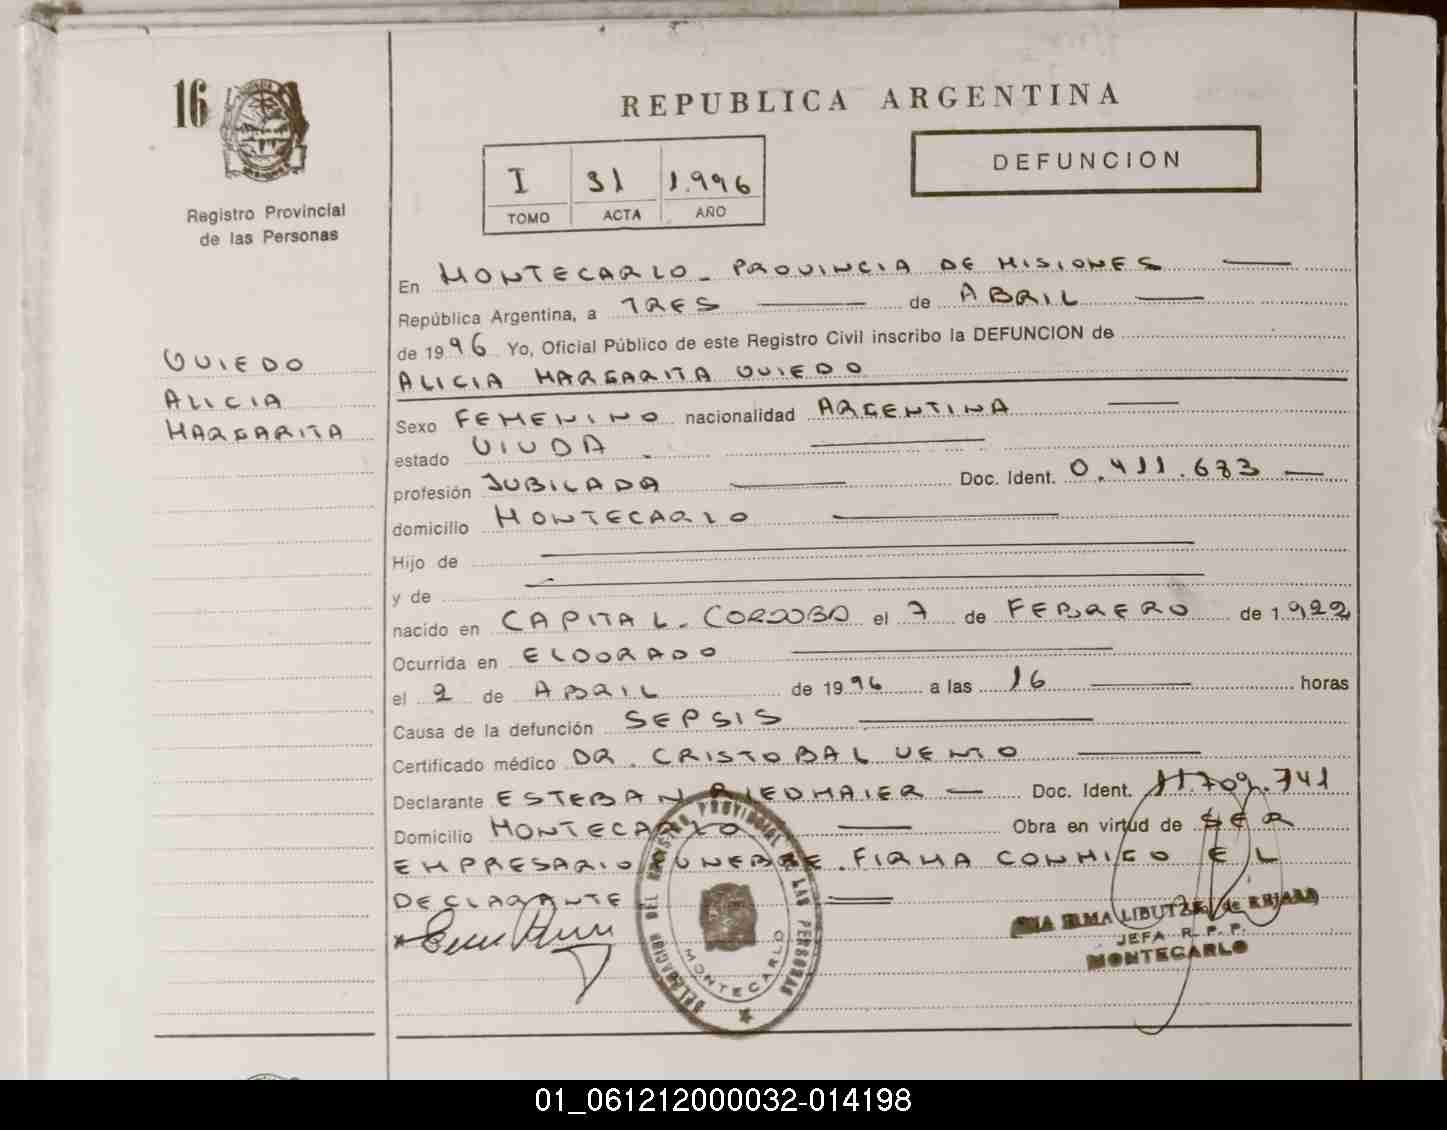 16
REPUBLICA ARGENTINA
DEFUNCION
I 31 1.996
TOMO ACTA AÑO
Registro Provincial
de las Personas
OVIEDO
ALICIA
MARGARITA
En MONTECARLO - PROVINCIA DE MISIONES
República Argentina, a TRES de ABRIL
de 1996 Yo, Oficial Público de este Registro Civil inscribo la DEFUNCION de
ALICIA MARGARITA OVIEDO
Sexo FEMENINO nacionalidad ARGENTINA
estado VIUDA
profesión JUBILADA Doc. Ident. 0.411.683
domicilio MONTECARLO
Hijo de
y de
nacido en CAPITAL - CORDOBA el 7 de FEBRERO de 1.922
Ocurrida en ELDORADO
el 2 de ABRIL de 1996 a las 16 horas
Causa de la defunción SEPSIS
Certificado médico DR. CRISTOBAL VENTO
Declarante ESTEBAN RIEDMAIER Doc. Ident. 11.709.741
Domicilio MONTECARLO Obra en virtud de SER
EMPRESARIO FUNEBRE. FIRMA CONMIGO EL
DECLARANTE
DELEGACION DEL REGISTRO PROVINCIAL DE LAS PERSONAS
MONTECARLO
IRMA LIBUTZK de
JEFA R. P. P.
MONTECARLO
01_061212000032-014198